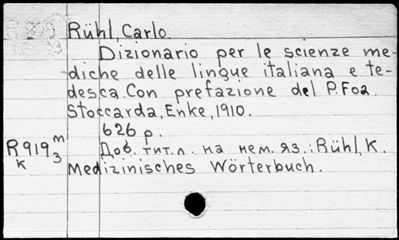 Rühl, Carlo.
Dizionario per le scienze me-
diche delle lingue italiana e te-
desca. Con prefazione del P. Foa.
Stoccarda, Enke, 1910.
626 p.
R919 m/3
к
Доб. тит. л. на нем. яз.: Rühl, K.
Medizinisches Wörterbuch.